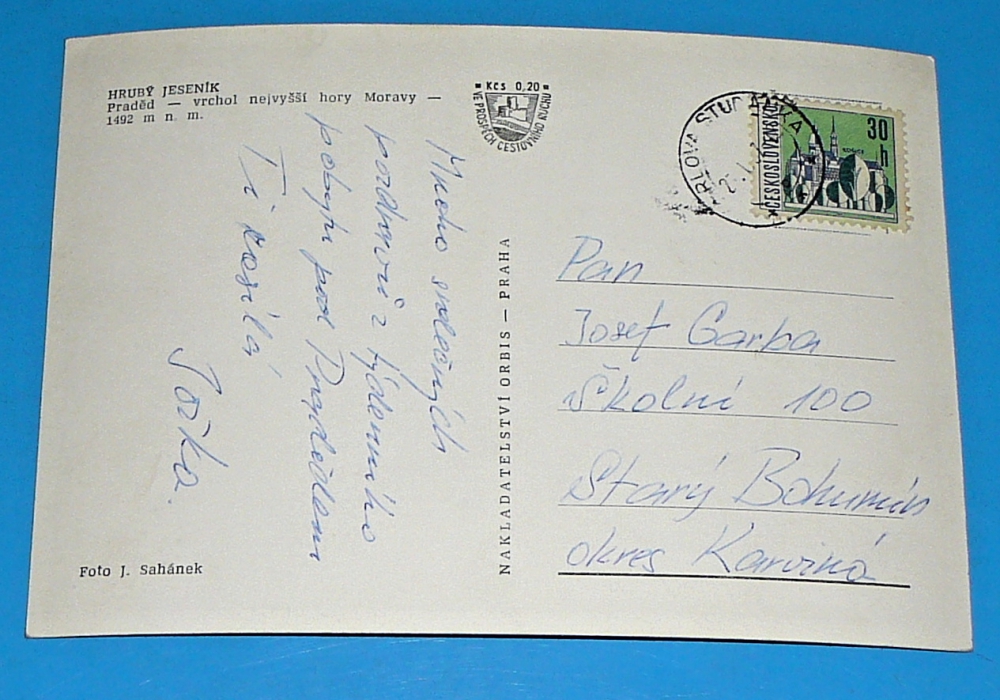 HRUBÝ JESENÍK
Praděd — vrchol nejvyšší hory Moravy —
1492 m n. m.
Kčs 0,20
VE PROSPĚCH CESTOVNÍHO RUCHU
ČESKOSLOVENSKO
30
h
Mnoho srdečných
pozdravů z týdenního
pobytu pod Pradědem
Ti posílá
Jožka.
NAKLADATELSTVÍ ORBIS — PRAHA
Pan
Josef Garba
Školní 100
Starý Bohumín
okres Karviná
Foto J. Sahánek